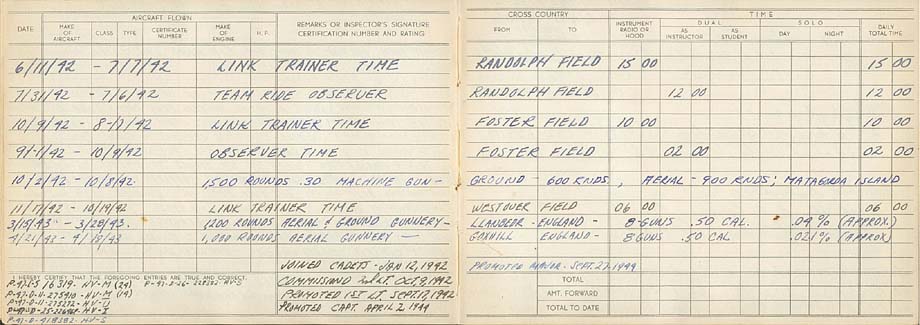 AIRCRAFT FLOWN
DATE MAKE OF AIRCRAFT CLASS TYPE CERTIFICATE NUMBER MAKE OF ENGINE H.P. REMARKS OR INSPECTOR'S SIGNATURE CERTIFICATION NUMBER AND RATING
6/11/42 - 7/7/42 LINK TRAINER TIME
7/31/42 - 7/6/42 TEAM RIDE OBSERVER
10/9/42 - 8-/7/42 LINK TRAINER TIME
9/-1/42 - 10/9/42 OBSERVER TIME
10/2/42 - 10/8/42. 1,500 ROUNDS .30 MACHINE GUN -
11/17/42 - 10/19/42 LINK TRAINER TIME
3/15/43 - 3/28/43. 1200 ROUNDS AERIAL & GROUND GUNNERY -
4/21/43 - 4/18/43 1,000 ROUNDS AERIAL GUNNERY -
JOINED CADETS - JAN 12, 1942
I HEREBY CERTIFY THAT THE FOREGOING ENTRIES ARE TRUE AND CORRECT.
COMMISSIONED 2nd LT. OCT. 9, 1942
PROMOTED 1ST LT. SEPT. 17, 1942
PROMOTED CAPT. APRIL 2 1944
CROSS COUNTRY TIME
FROM TO INSTRUMENT RADIO OR HOOD DUAL AS INSTRUCTOR AS STUDENT SOLO DAY NIGHT DAILY TOTAL TIME
RANDOLPH FIELD 15 00 15 00
RANDOLPH FIELD 12 00 12 00
FOSTER FIELD 10 00 10 00
FOSTER FIELD 02 00 02 00
GROUND - 600 RNDS., AERIAL - 900 RNDS; MATAGORDA ISLAND
WESTOVER FIELD 06 00 06 00
LLANBEDR - ENGLAND - 8 GUNS .50 CAL. .04% (APPROX.)
GOXHILL ENGLAND - 8 GUNS .50 CAL .021% (APPROX)
PROMOTED MAJOR - SEPT. 27-1944
TOTAL
AMT. FORWARD
TOTAL TO DATE